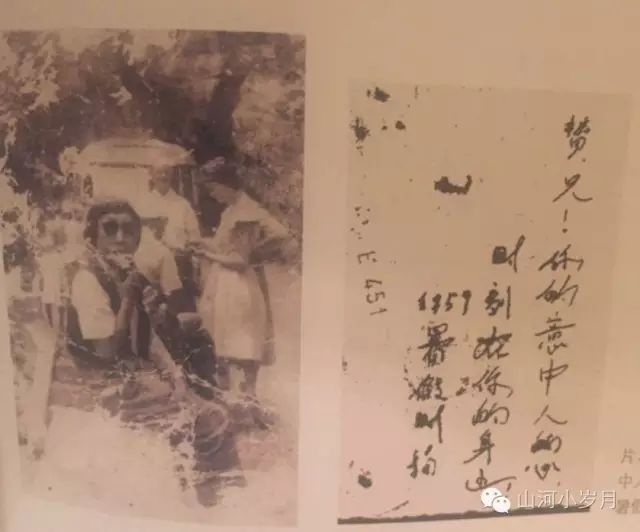 赞兄！你的意中人的心，
时刻在你的身边，
1959
暑假时拍
451
片
中
暑假
山河小岁月